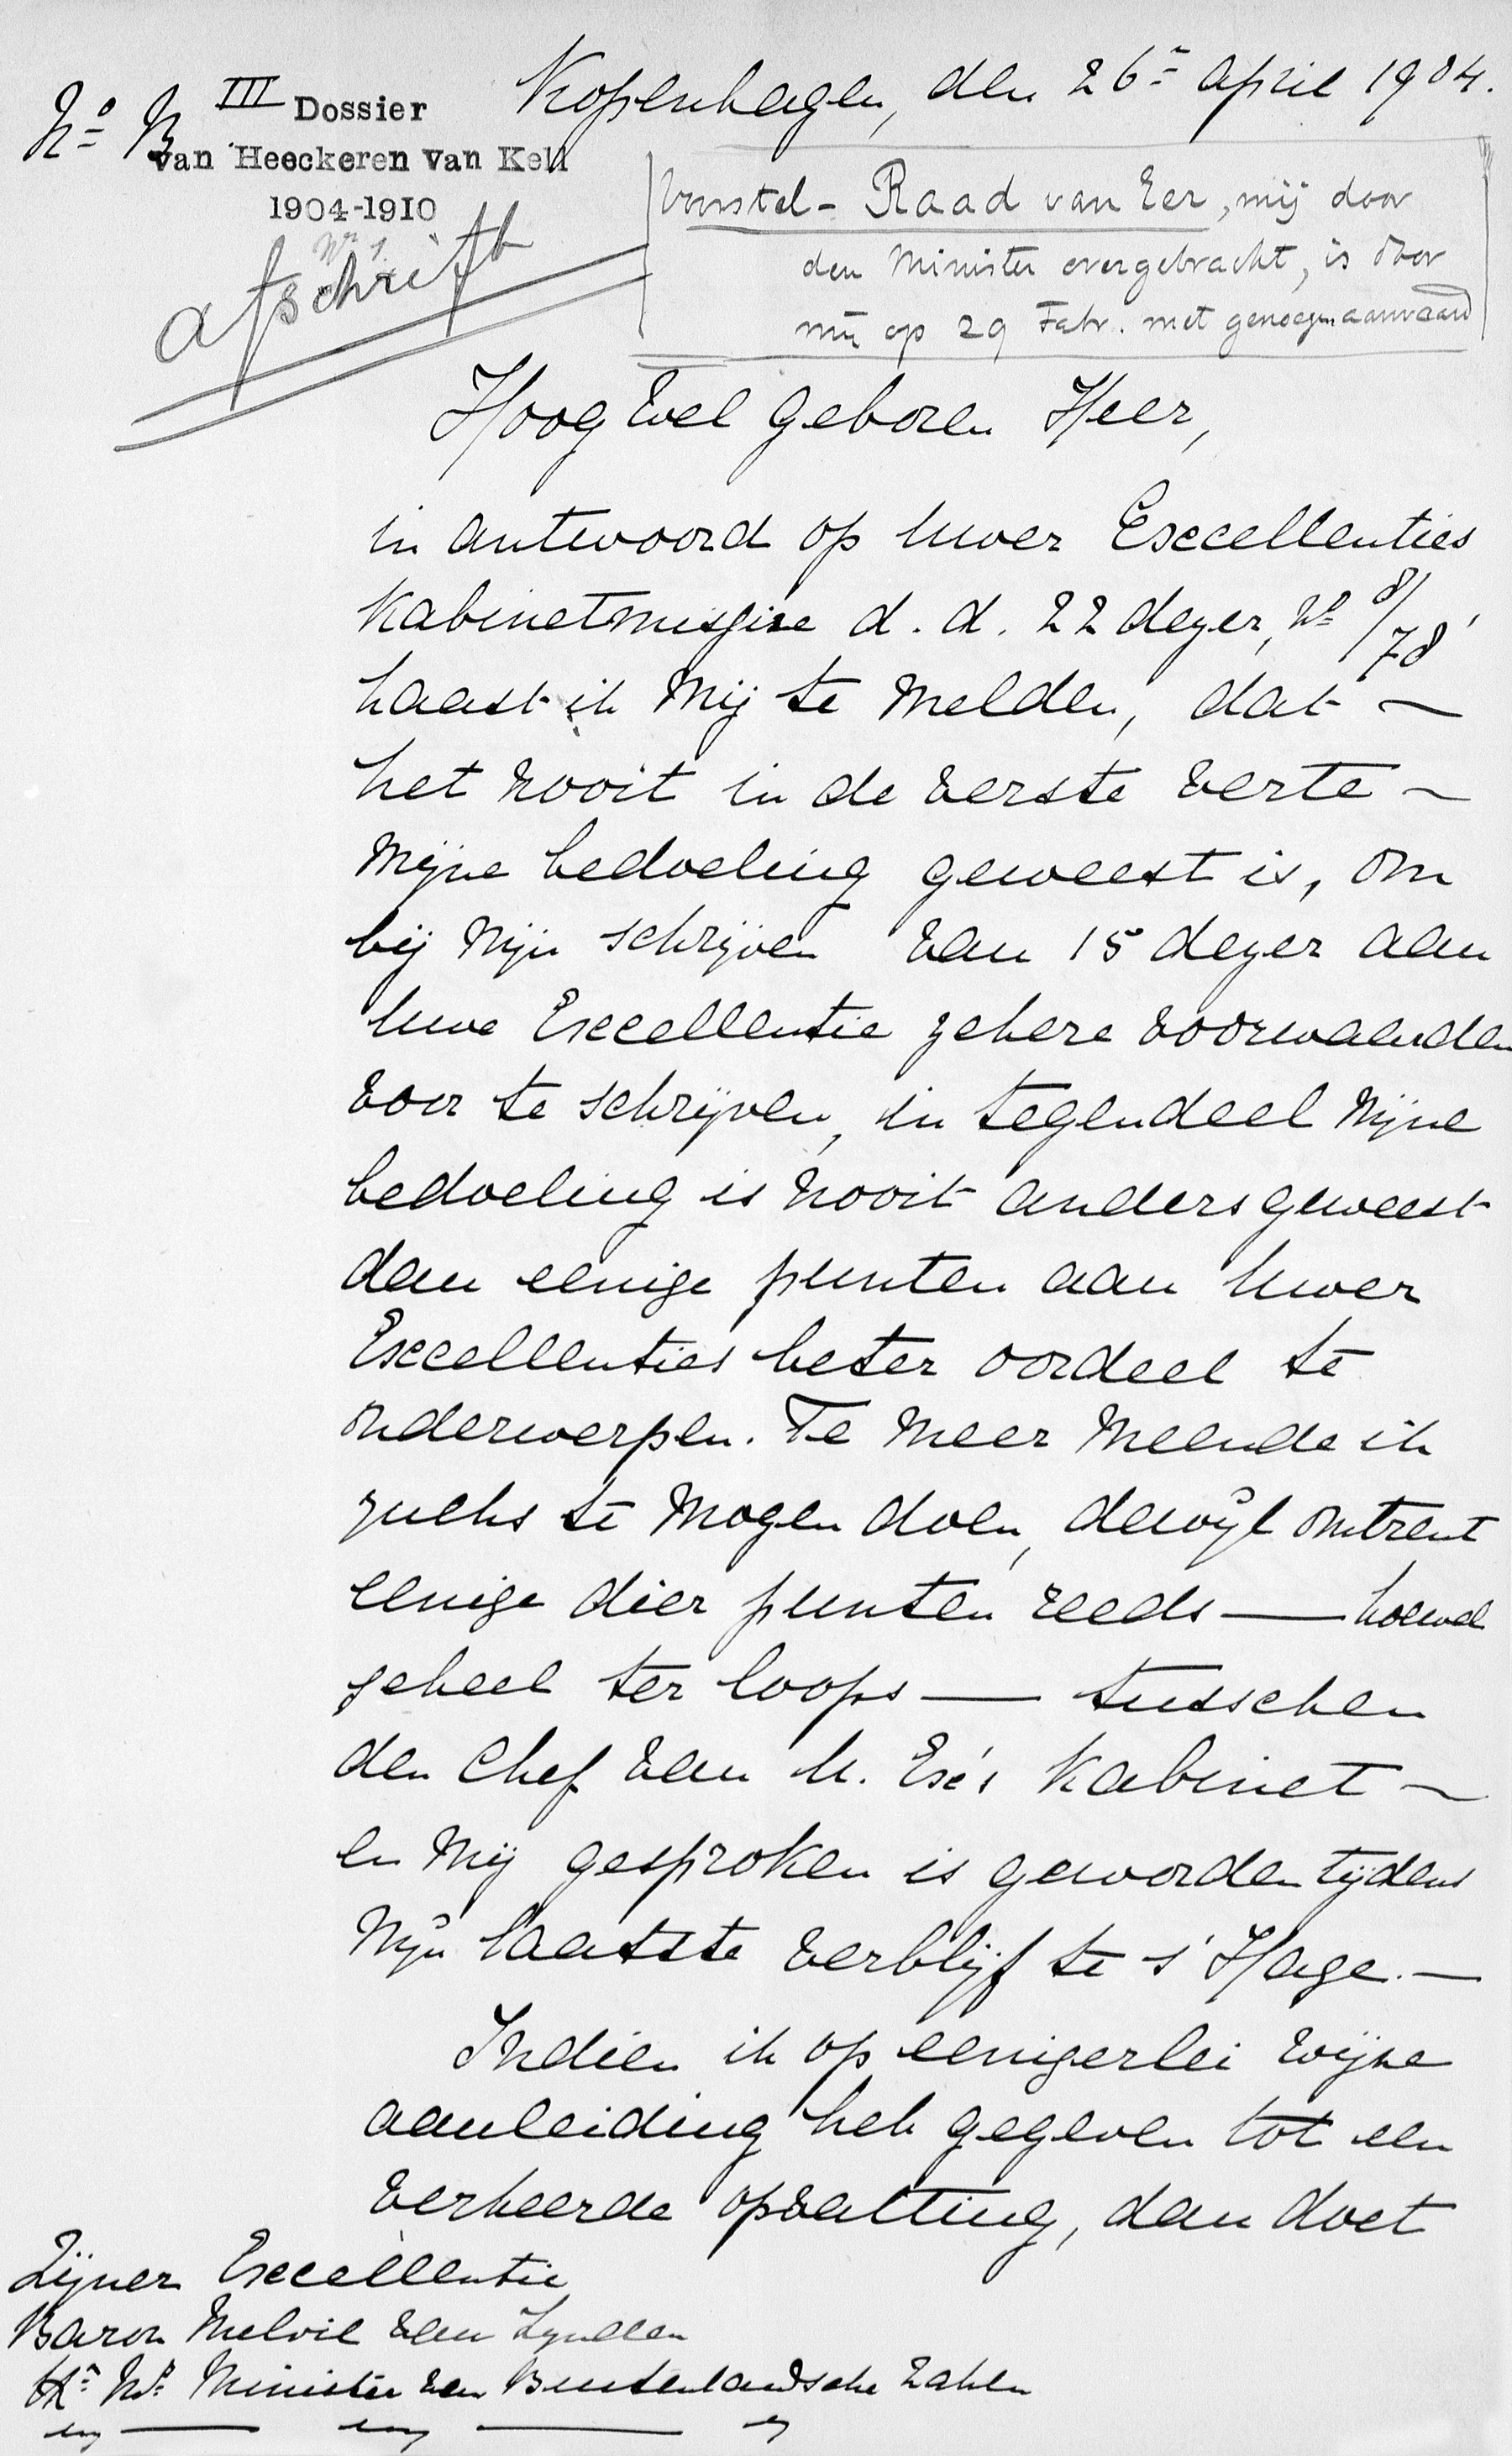 Kopenhagen, den 26n April 1904.
No B
III Dossier
van Heeckeren van Kell
1904-1910
No 1.
afschrift
Voorstel - Raad van Eer, mij door
den Minister overgebracht, is door
mij op 29 Febr. met genoegen aanvaard
Hoog Wel Geboren Heer,
in antwoord op Uwer Excellenties
Kabinetmissive d. d. 22 dezer, No 8/78,
haast ik mij te melden, dat
het nooit in de verste verte
mijne bedoeling geweest is, om
bij mijn schrijven van 15 dezer aan
Uwe Excellentie zekere voorwaarden
voor te schrijven, in tegendeel mijne
bedoeling is nooit anders geweest
dan eenige punten aan Uwer
Excellenties beter oordeel te
onderwerpen. Te meer meende ik
zulks te mogen doen, dewijl omtrent
eenige dier punten reeds — hoewel
geheel ter loops — tusschen
den Chef van U. Exc's Kabinet
en mij gesproken is geworden tijdens
mijn laatste verblijf te 's Hage. —
Indien ik op eenigerlei wijze
aanleiding heb gegeven tot een
verkeerde opvatting, dan doet
Zijner Excellentie
Baron Melvil van Lynden
Minister van Buitenlandsche Zaken
enz enz